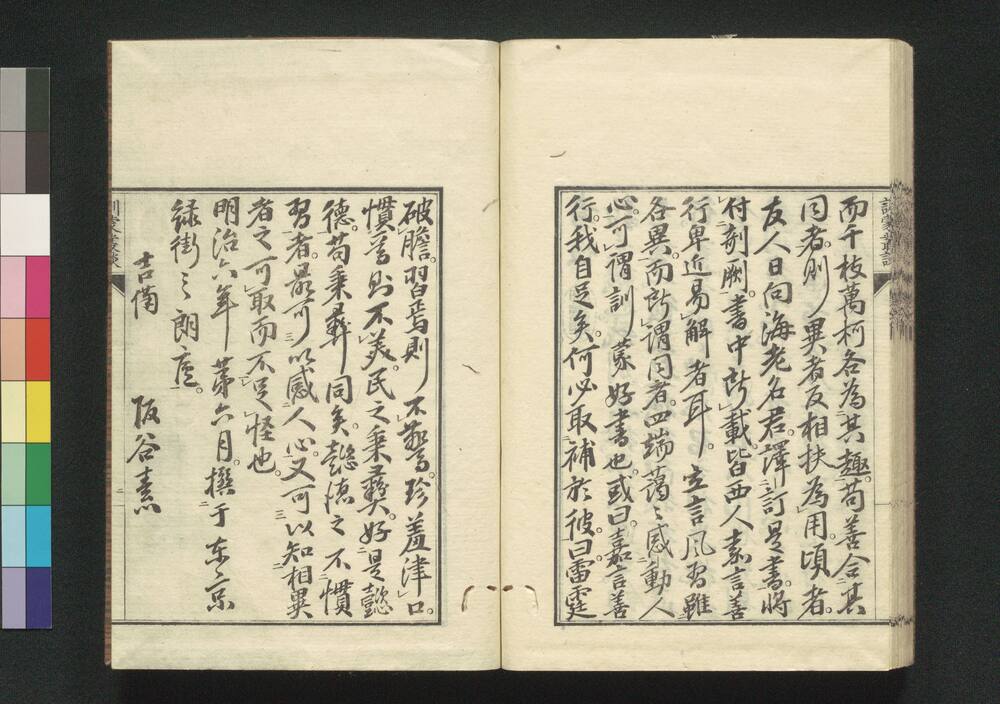 而千枝萬柯各為其趣。苟善合其
同者。則異者反相扶為用。頃者。
友人日向海老名君譯訂是書。將
付剞劂。書中所載皆西人嘉言善
行卑近易解者耳。立言風習雖
各異。而所謂同者。四端藹々感動人
心。可謂訓蒙好書也。或曰。嘉言善
行。我自足矣。何必取補於彼。曰。雷霆
破膽。習焉則不驚。珍羞津口。
慣焉則不美。民之秉彝。好是懿
德。苟秉彝同矣。懿德之不慣
習者。最可以感人心。又可以知相異
者之可取而不足怪也。
明治六年第六月。撰于東京
緑街之朗廬。
吉備 阪谷素
訓蒙叢談